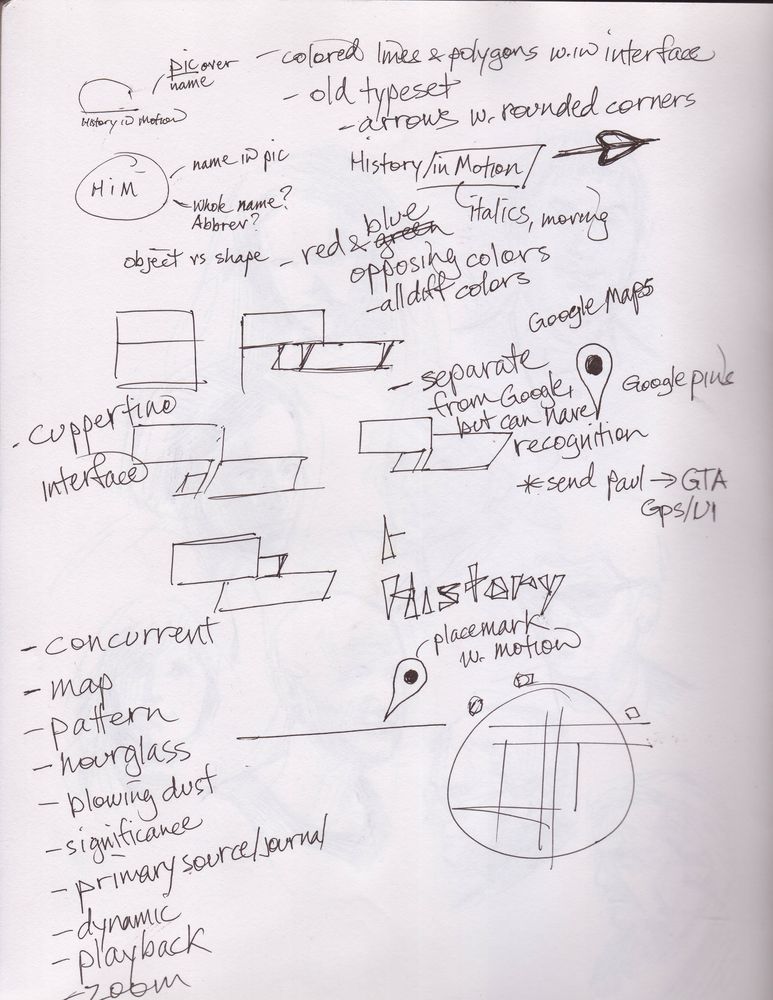 pic over
name
History in Motion
- colored lines & polygons w.in interface
- old typeset
- arrows w. rounded corners
HiM
name in pic
Whole name?
Abbrev?
History/in Motion/
italics, moving
object vs shape
- red & green
blue
opposing colors
- all diff colors
Google Maps
Google pins
- separate
from Google,
but can have
recognition
* send paul → GTA
Gps/UI
- cuppertino
interface
History
placemark
w. motion
- concurrent
- map
- pattern
- hourglass
- blowing dust
- significance
- primary source/journal
- dynamic
- playback
- zoom